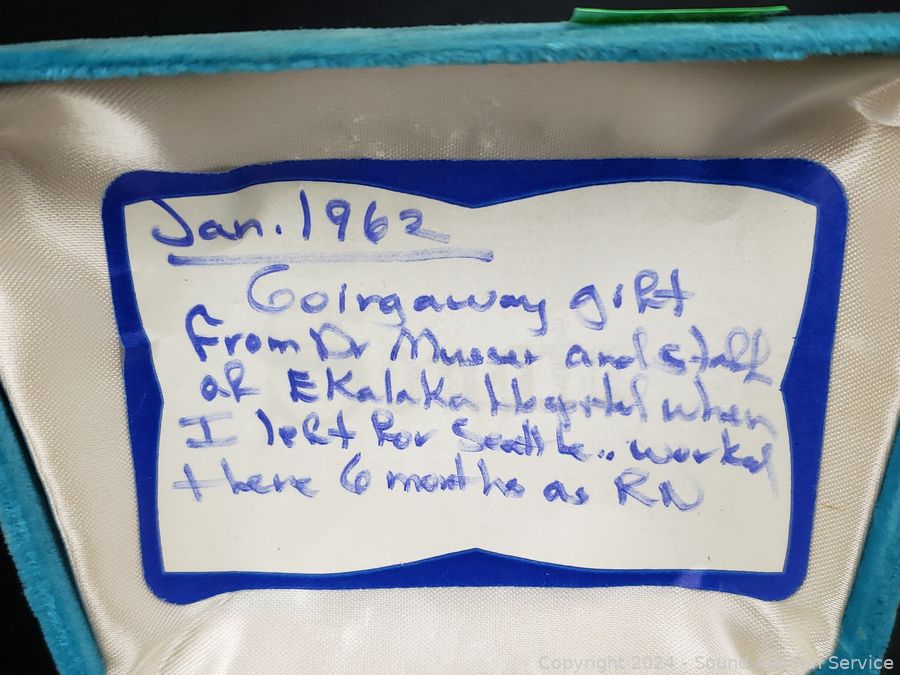 Jan. 1962
Going away gift
From Dr Musser and staff
of Ekalaka Hospital when
I left for Seattle.. worked
there 6 months as RN
Copyright 2024 - Sound Auction Service